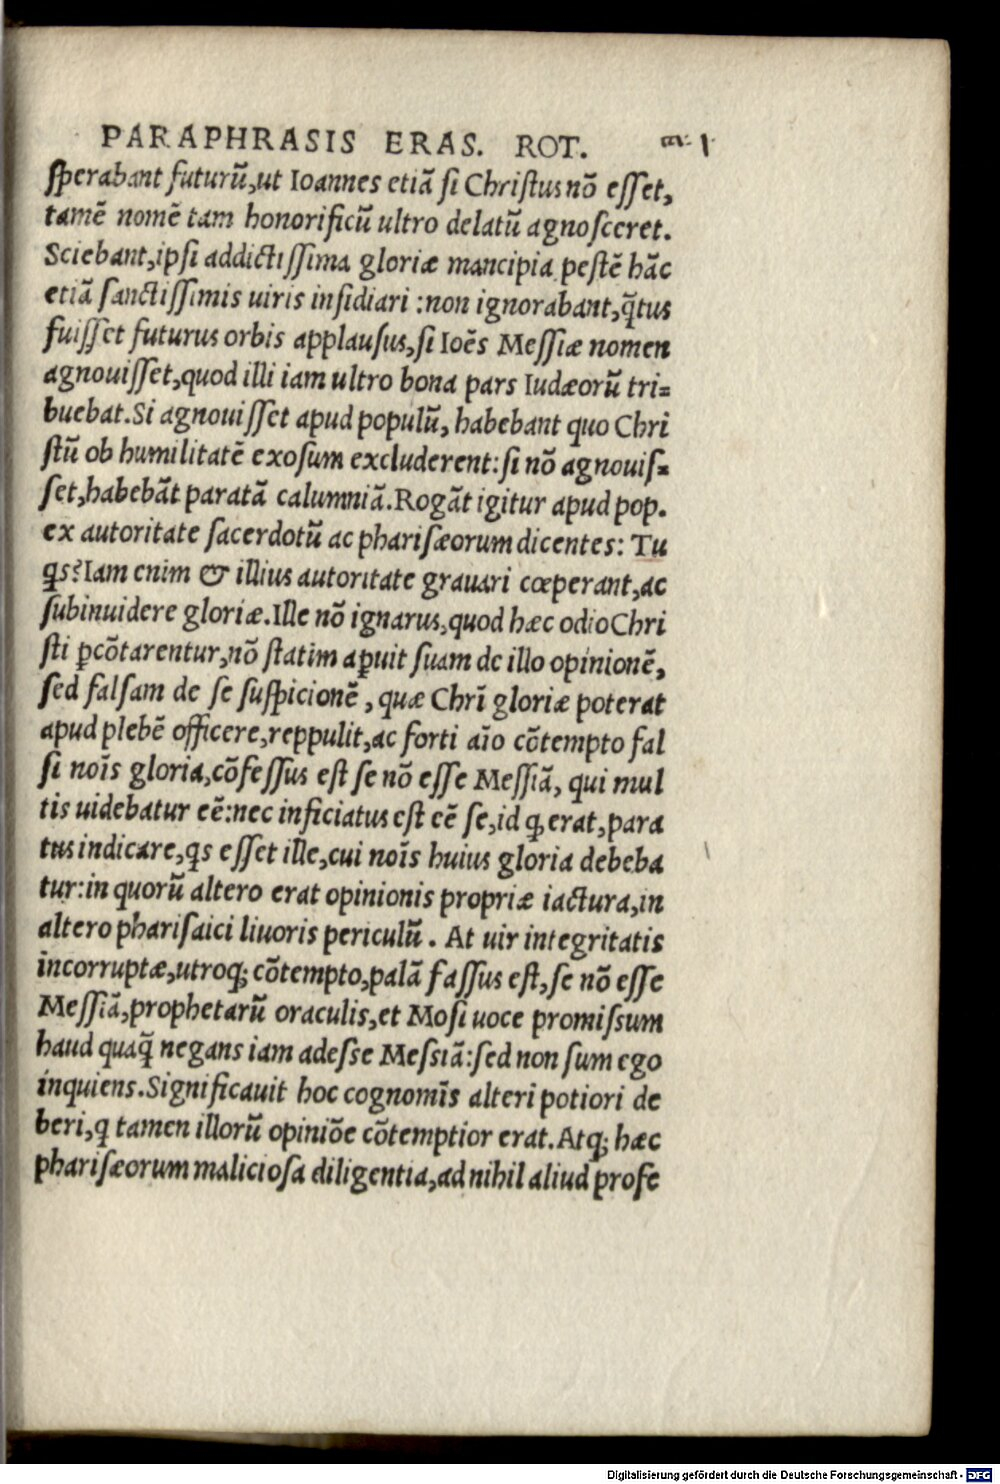 PARAPHRASIS ERAS. ROT.
ſperabant futurũ,ut Ioannes etiã ſi Chriſtus nõ eſſet,
tamẽ nomẽ tam honorificũ ultro delatũ agnoſceret.
Sciebant,ipſi addictiſſima gloriæ mancipia peſtẽ hãc
etiã ſanctiſſimis uiris inſidiari :non ignorabant,q̃tus
fuiſſet futurus orbis applauſus,ſi Ioẽs Meſſiæ nomen
agnouiſſet,quod illi iam ultro bona pars Iudæorũ tri=
buebat.Si agnouiſſet apud populũ, habebant quo Chri
ſtũ ob humilitatẽ exoſum excluderent:ſi nõ agnouiſ=
ſet,habebãt paratã calumniã.Rogãt igitur apud pop.
ex autoritate ſacerdotũ ac phariſæorum dicentes: Tu
qs?Iam enim & illius autoritate grauari cœperant,ac
ſubinuidere gloriæ.Ille nõ ignarus,quod hæc odio Chri
ſti ꝑcõtarentur,nõ ſtatim aꝑuit ſuam de illo opinionẽ,
ſed falſam de ſe ſuſpicionẽ, quæ Chrĩ gloriæ poterat
apud plebẽ officere,reppulit,ac forti aĩo cõtempto fal
ſi noĩs gloria,cõfeſſus eſt ſe nõ eſſe Meſſiã, qui mul
tis uidebatur eẽ:nec inficiatus eſt eẽ ſe,id q, erat,para
tus indicare,qs eſſet ille,cui noĩs huius gloria debeba
tur:in quorũ altero erat opinionis propriæ iactura,in
altero phariſaici liuoris periculũ . At uir integritatis
incorruptæ,utroq; cõtempto,palã faſſus eſt,ſe nõ eſſe
Meſſiã,prophetarũ oraculis,et Moſi uoce promiſſum
haud quaq̃ negans iam adeſse Meſsiã:ſed non ſum ego
inquiens.Significauit hoc cognomĩs alteri potiori de
beri,q tamen illorũ opiniõe cõtemptior erat.Atq; hæc
phariſæorum malicioſa diligentia,ad nihil aliud profe
Digitalisierung gefördert durch die Deutsche Forschungsgemeinschaft - DFG